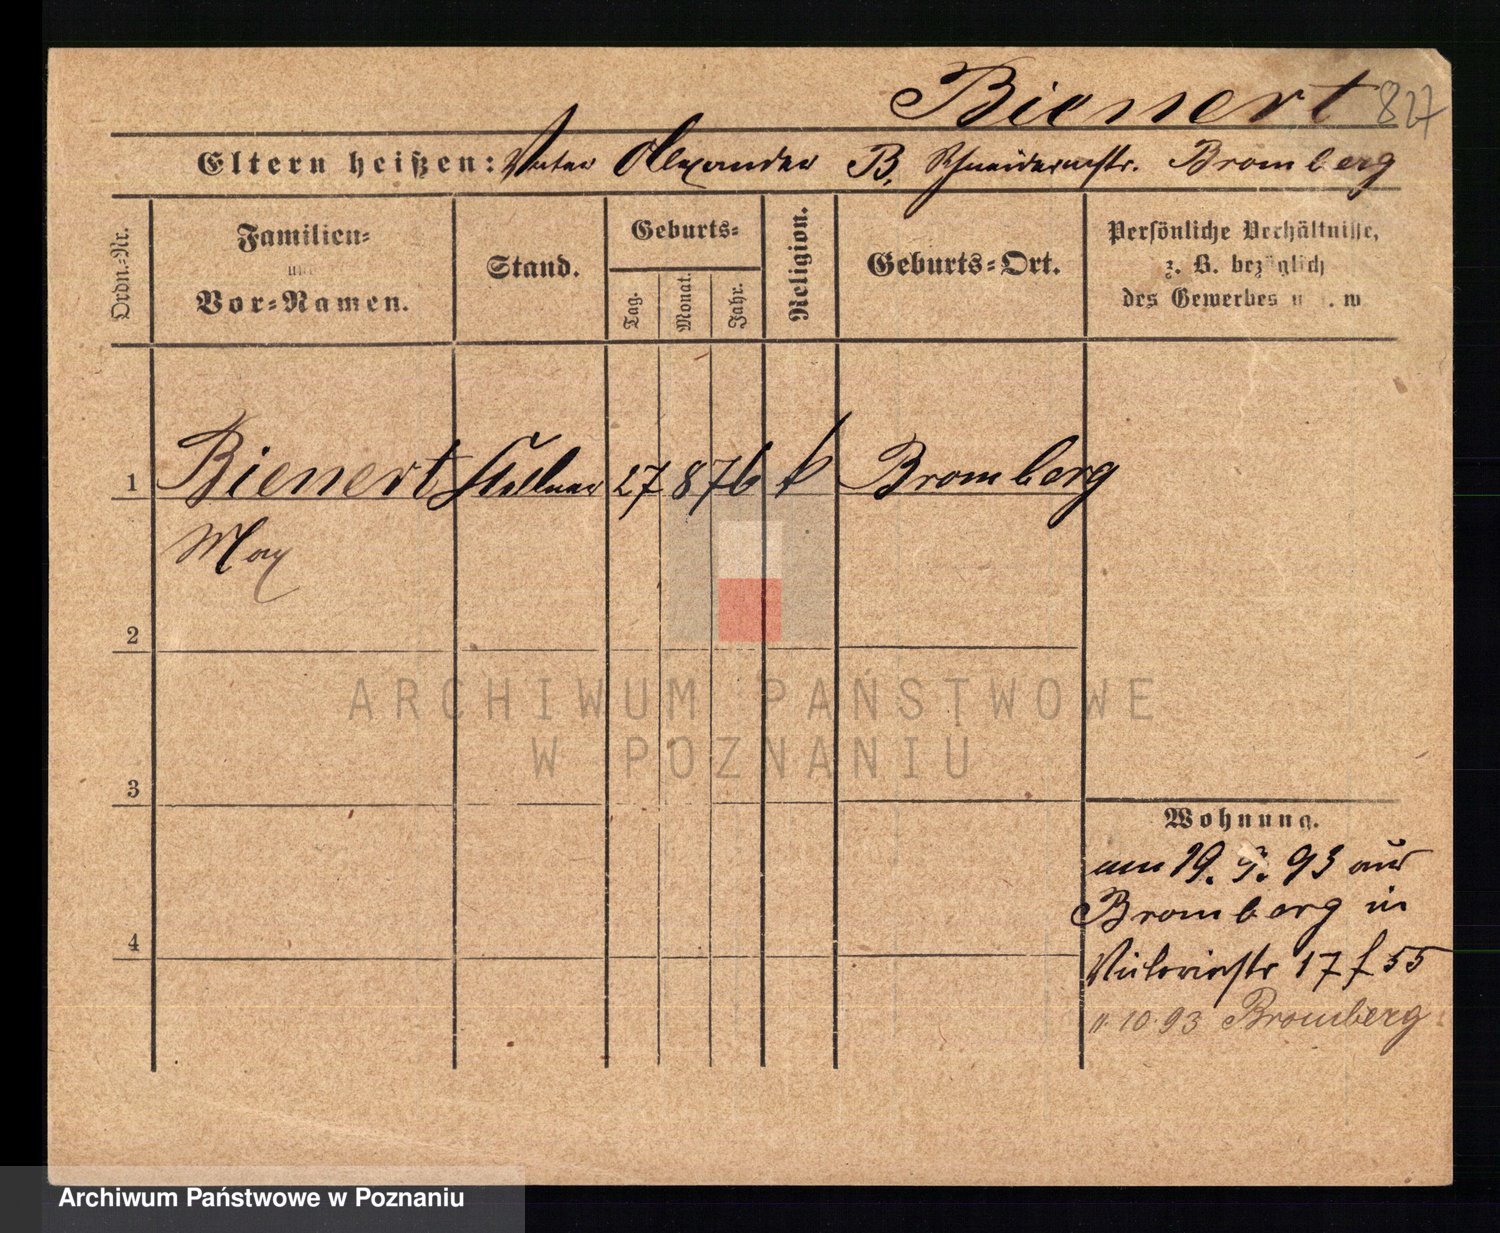 Bienert 827
Eltern heißen: Vater Alexander B. Schneidermstr. Bromberg
Ordn.-Nr.
Familien-
und
Vor-Namen.
Stand.
Geburts-
Tag.
Monat.
Jahr.
Religion.
Geburts-Ort.
Persönliche Verhältnisse,
z. B. bezüglich
des Gewerbes u. s. w.
1 Bienert Kellner 27 8 76 k Bromberg
Max
2
3
4
Wohnung.
am 19. 9. 93 aus
Bromberg in
Victoriastr 17 f 55
11. 10. 93 Bromberg
ARCHIWUM PAŃSTWOWE
W POZNANIU
Archiwum Państwowe w Poznaniu